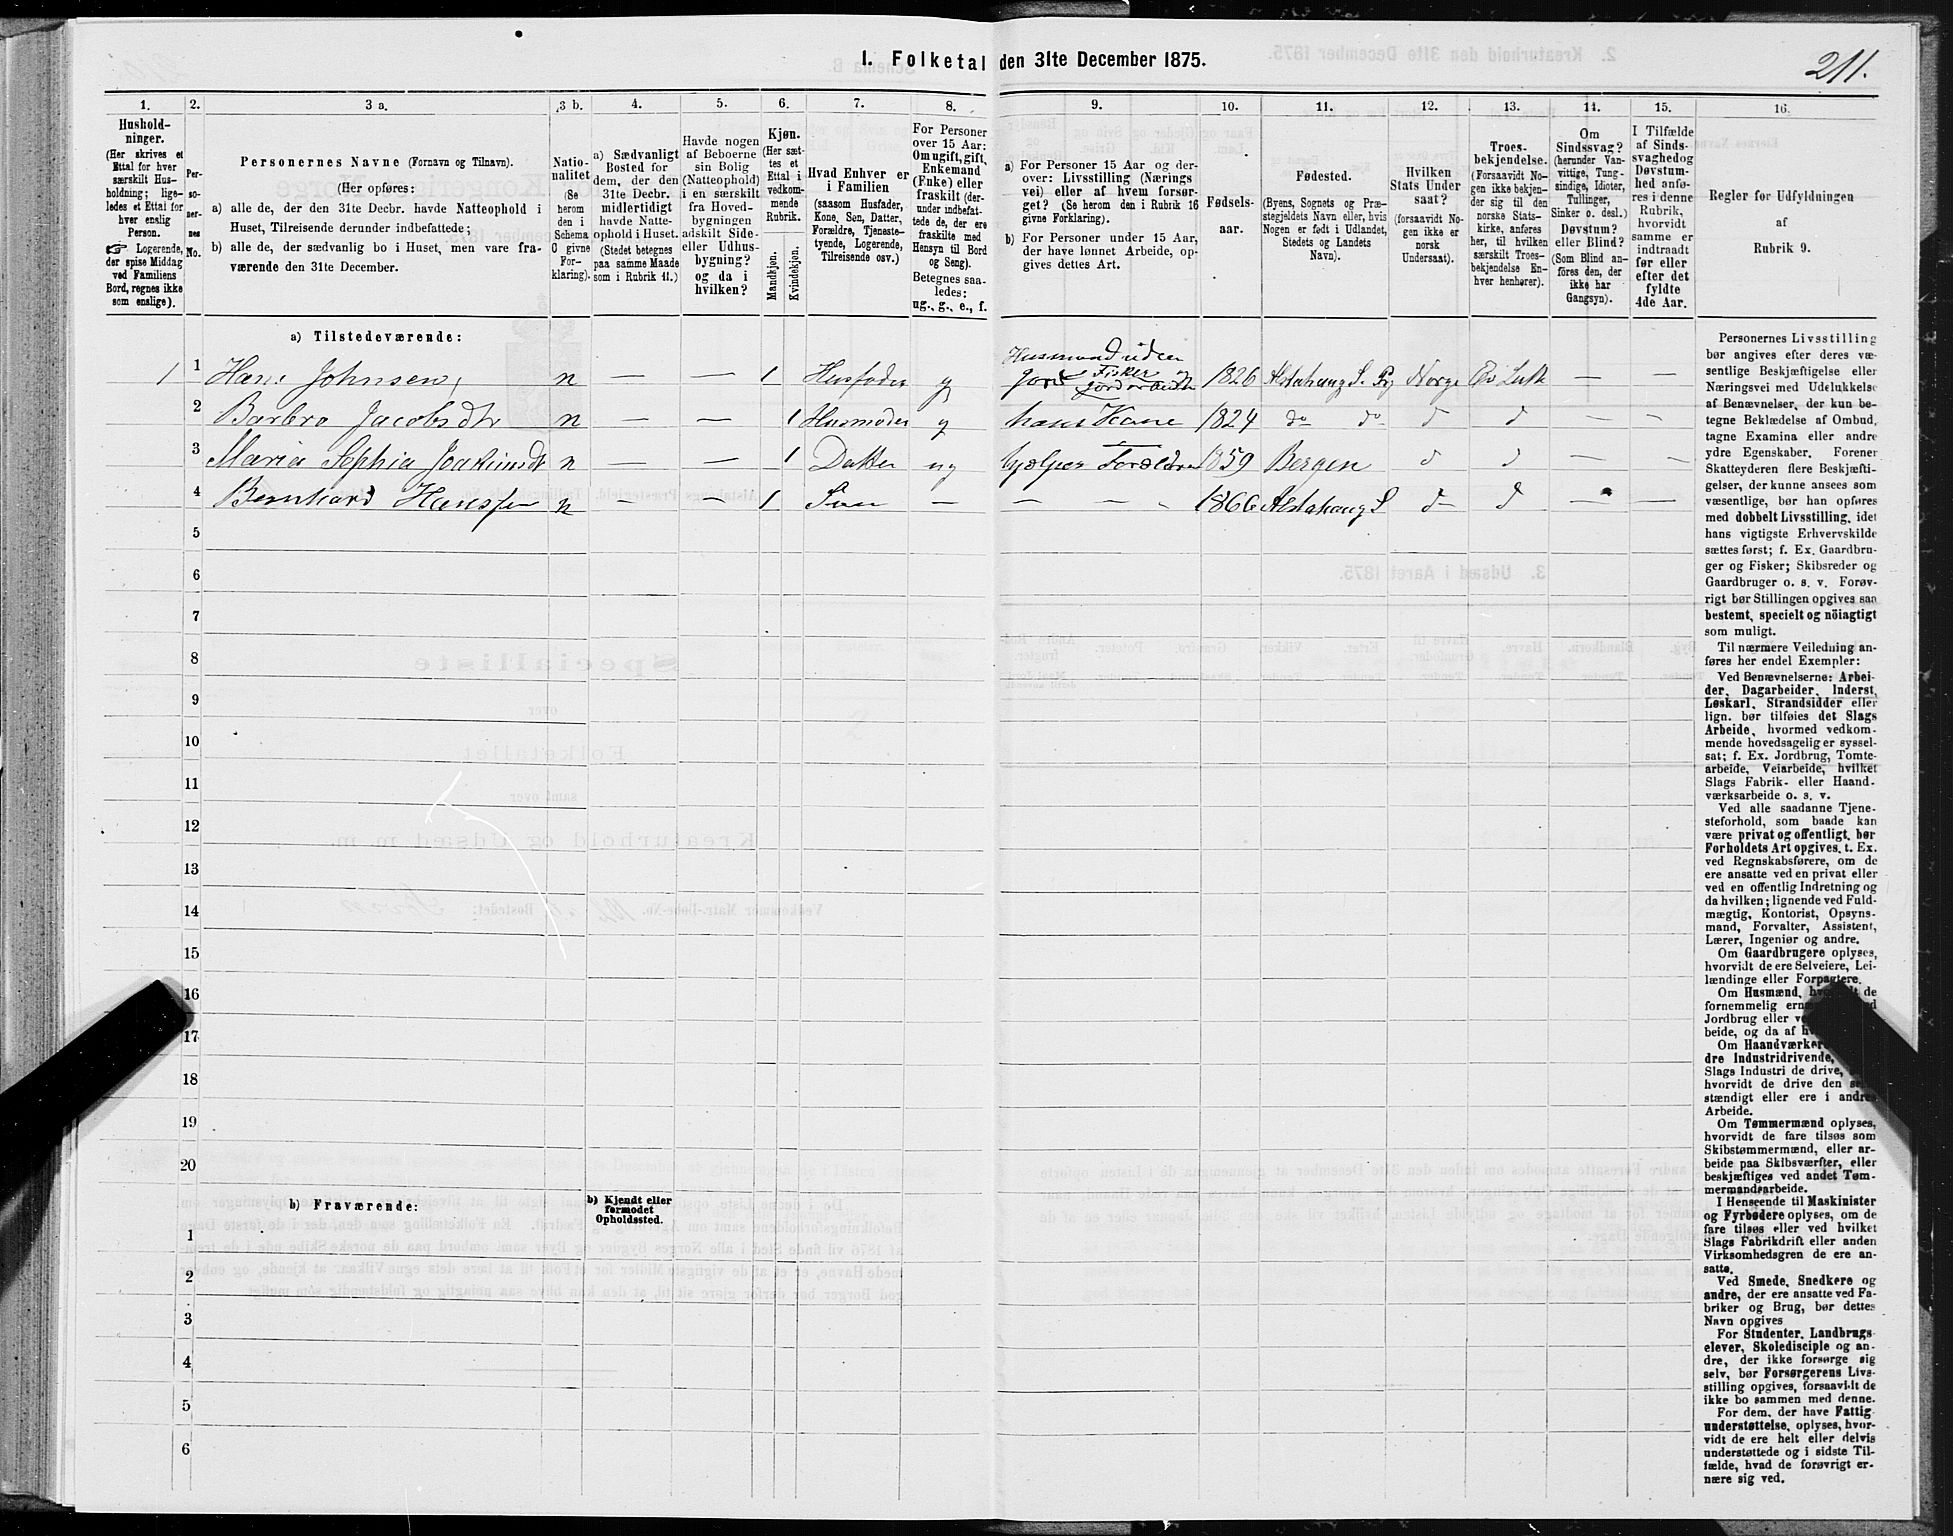 I. Folketal den 31te December 1875.
211.
1.
Hushold-
ninger.
(Her skrives et
Ettal for hver
særskilt Hus-
holdning; lige-
ledes et Ettal for
hver enslig
Person.
☞ Logerende,
der spise Middag
ved Familiens
Bord, regnes ikke
som enslige).
2.
Per-
so-
ner-
nes
No.
3 a.
Personernes Navne (Fornavn og Tilnavn).
(Her opføres:
a) alle de, der den 31te Decbr. havde Natteophold i
Huset, Tilreisende derunder indbefattede;
b) alle de, der sædvanlig bo i Huset, men vare fra-
værende den 31te December.
3 b.
Natio-
nalitet
(Se
herom
den i
Schema
O givne
For-
klaring).
4.
a) Sædvanligt
Bosted for
dem, der den
31te Decbr.
midlertidigt
havde Natte-
ophold i Huset.
(Stedet betegnes
paa samme Maade
som i Rubrik 11.)
5.
Havde nogen
af Beboerne
sin Bolig
(Natteophold)
i en særskilt
fra Hoved-
bygningen
adskilt Side-
eller Udhus-
bygning?
og da i
hvilken?
6.
Kjøn.
(Her sæt-
tes et
Ettal i
vedkom-
mende
Rubrik.
Mandkjøn.
Kvindekjøn.
7.
Hvad Enhver er
i Familien
(saasom Husfader,
Kone, Søn, Datter,
Forældre, Tjeneste-
tyende, Logerende,
Tilreisende osv.)
8.
For Personer
over 15 Aar:
Om ugift, gift,
Enkemand
(Enke) eller
fraskilt (der-
under indbefat-
tede de, der ere
fraskilte med
Hensyn til Bord
og Seng).
Betegnes saa-
ledes:
ug., g., e., f.
9.
a) For Personer 15 Aar og der-
over: Livsstilling (Nærings
vei) eller af hvem forsør-
get? (Se herom den i Rubrik 16
givne Forklaring).
b) For Personer under 15 Aar,
der have lønnet Arbeide, op-
gives dettes Art.
10.
Fødsels-
aar.
11.
Fødested.
(Byens, Sognets og Præ-
stegjeldets Navn eller, hvis
Nogen er født i Udlandet,
Stedets og Landets
Navn).
12.
Hvilken
Stats Under
saat?
(forsaavidt No-
gen ikke er
norsk
Undersaat).
13.
Troes-
bekjendelse.
(Forsaavidt No-
gen ikke bekjen-
der sig til den
norske Stats-
kirke, anføres
her, til hvilken
særskilt Troes-
bekjendelse En-
hver henhører).
14.
Om
Sindssvag?
(herunder Van-
vittige, Tung-
sindige, Idioter,
Tullinger,
Sinker o. desl.)
Døvstum?
eller Blind?
(Som Blind an-
føres den, der
ikke har
Gangsyn).
15.
I Tilfælde
af Sinds-
svaghed og
Døvstum-
hed anfø-
res i denne
Rubrik,
hvorvidt
samme er
indtraadt
før eller
efter det
fyldte
4de Aar.
16.
Regler for Udfyldningen
af
Rubrik 9.
a) Tilstedeværende:
Husmand uden
1 1 Hans Johnsen, n — — 1 Husfader g Jord Fisker og Jordarbeider 1826 Alstahaug S. Pg Norge Ev Luth — —
2 Barbro Jacobsdtr n — — 1 Husmoder g hans Kone 1824 do do d d — —
3 Maria Sophia Joakimsdt n — — 1 Datter ug hjelper Forældre 1859 Bergen d d — —
4 Bernhard Hanssen n — — 1 Søn — — — 1866 Alstahaug S d d — —
5
6
7
8
9
10
11
12
13
14
15
16
17
18
19
20
b) Fraværende:
b) Kjendt eller
formodet
Opholdssted.
1
2
3
4
5
6
Personernes Livsstilling
bør angives efter deres væ-
sentlige Beskjæftigelse eller
Næringsvei med Udelukkelse
af Benævnelser, der kun be-
tegne Beklædelse af Ombud,
tagne Examina eller andre
ydre Egenskaber. Forener
Skatteyderen flere Beskjæfti-
gelser, der kunne ansees som
væsentlige, bør han opføres
med dobbelt Livsstilling, idet
hans vigtigste Erhvervskilde
sættes først; f. Ex. Gaardbru-
ger og Fisker; Skibsreder og
Gaardbruger o. s. v. Forøv-
rigt bør Stillingen opgives saa
bestemt, specielt og nöiagtigt
som muligt.
Til nærmere Veiledning an-
føres her endel Exempler:
Ved Benævnelserne: Arbei-
der, Dagarbeider, Inderst,
Løskarl, Strandsidder eller
lign. bør tilføies det Slags
Arbeide, hvormed vedkom-
mende hovedsagelig er syssel-
sat; f. Ex. Jordbrug, Tomte-
arbeide, Veiarbeide, hvilket
Slags Fabrik- eller Haand-
værksarbeide o. s. v.
Ved alle saadanne Tjene-
steforhold, som baade kan
være privat og offentligt, bør
Forholdets Art opgives, t. Ex.
ved Regnskabsførere, om de
ere ansatte ved en privat eller
ved en offentlig Indretning og
da hvilken; lignende ved Fuld-
mægtig, Kontorist, Opsyns-
mand, Forvalter, Assistent,
Lærer, Ingeniør og andre.
Om Gaardbrugere oplyses,
hvorvidt de ere Selveiere, Lei-
lændinge eller Forpagtere.
Om Husmænd, de
fornemmelig
Jordbrug eller
beide, og da af
Om Haandværkere
dre Industridrivende,
Slags Industri de drive,
hvorvidt de drive den
stændigt eller ere i andres
Arbeide.
Om Tømmermænd oplyses,
hvorvidt de fare tilsøs som
Skibstømmermænd, eller ar-
beide paa Skibsværfter, eller
beskjæftiges ved andet Tøm-
mermandsarbeide.
I Henseende til Maskinister
og Fyrbødere oplyses, om de
fare tilsøs eller ved hvilket
Slags Fabrikdrift eller anden
Virksomhedsgren de ere an-
satte.
Ved Smede, Snedkere og
andre, der ere ansatte ved Fa-
briker og Brug, bør dettes
Navn opgives
For Studenter, Landbrugs-
elever, Skoledisciple og an-
dre, der ikke forsørge sig
selv, bør Forsørgerens Livs-
stilling opgives, forsaavidt de
ikke bo sammen med denne.
For dem, der have Fattig-
understøttelse, oplyses, hvor-
vidt de ere helt eller delvis
understøttede og i sidste Til-
fælde, hvad de forøvrigt er-
nære sig ved.